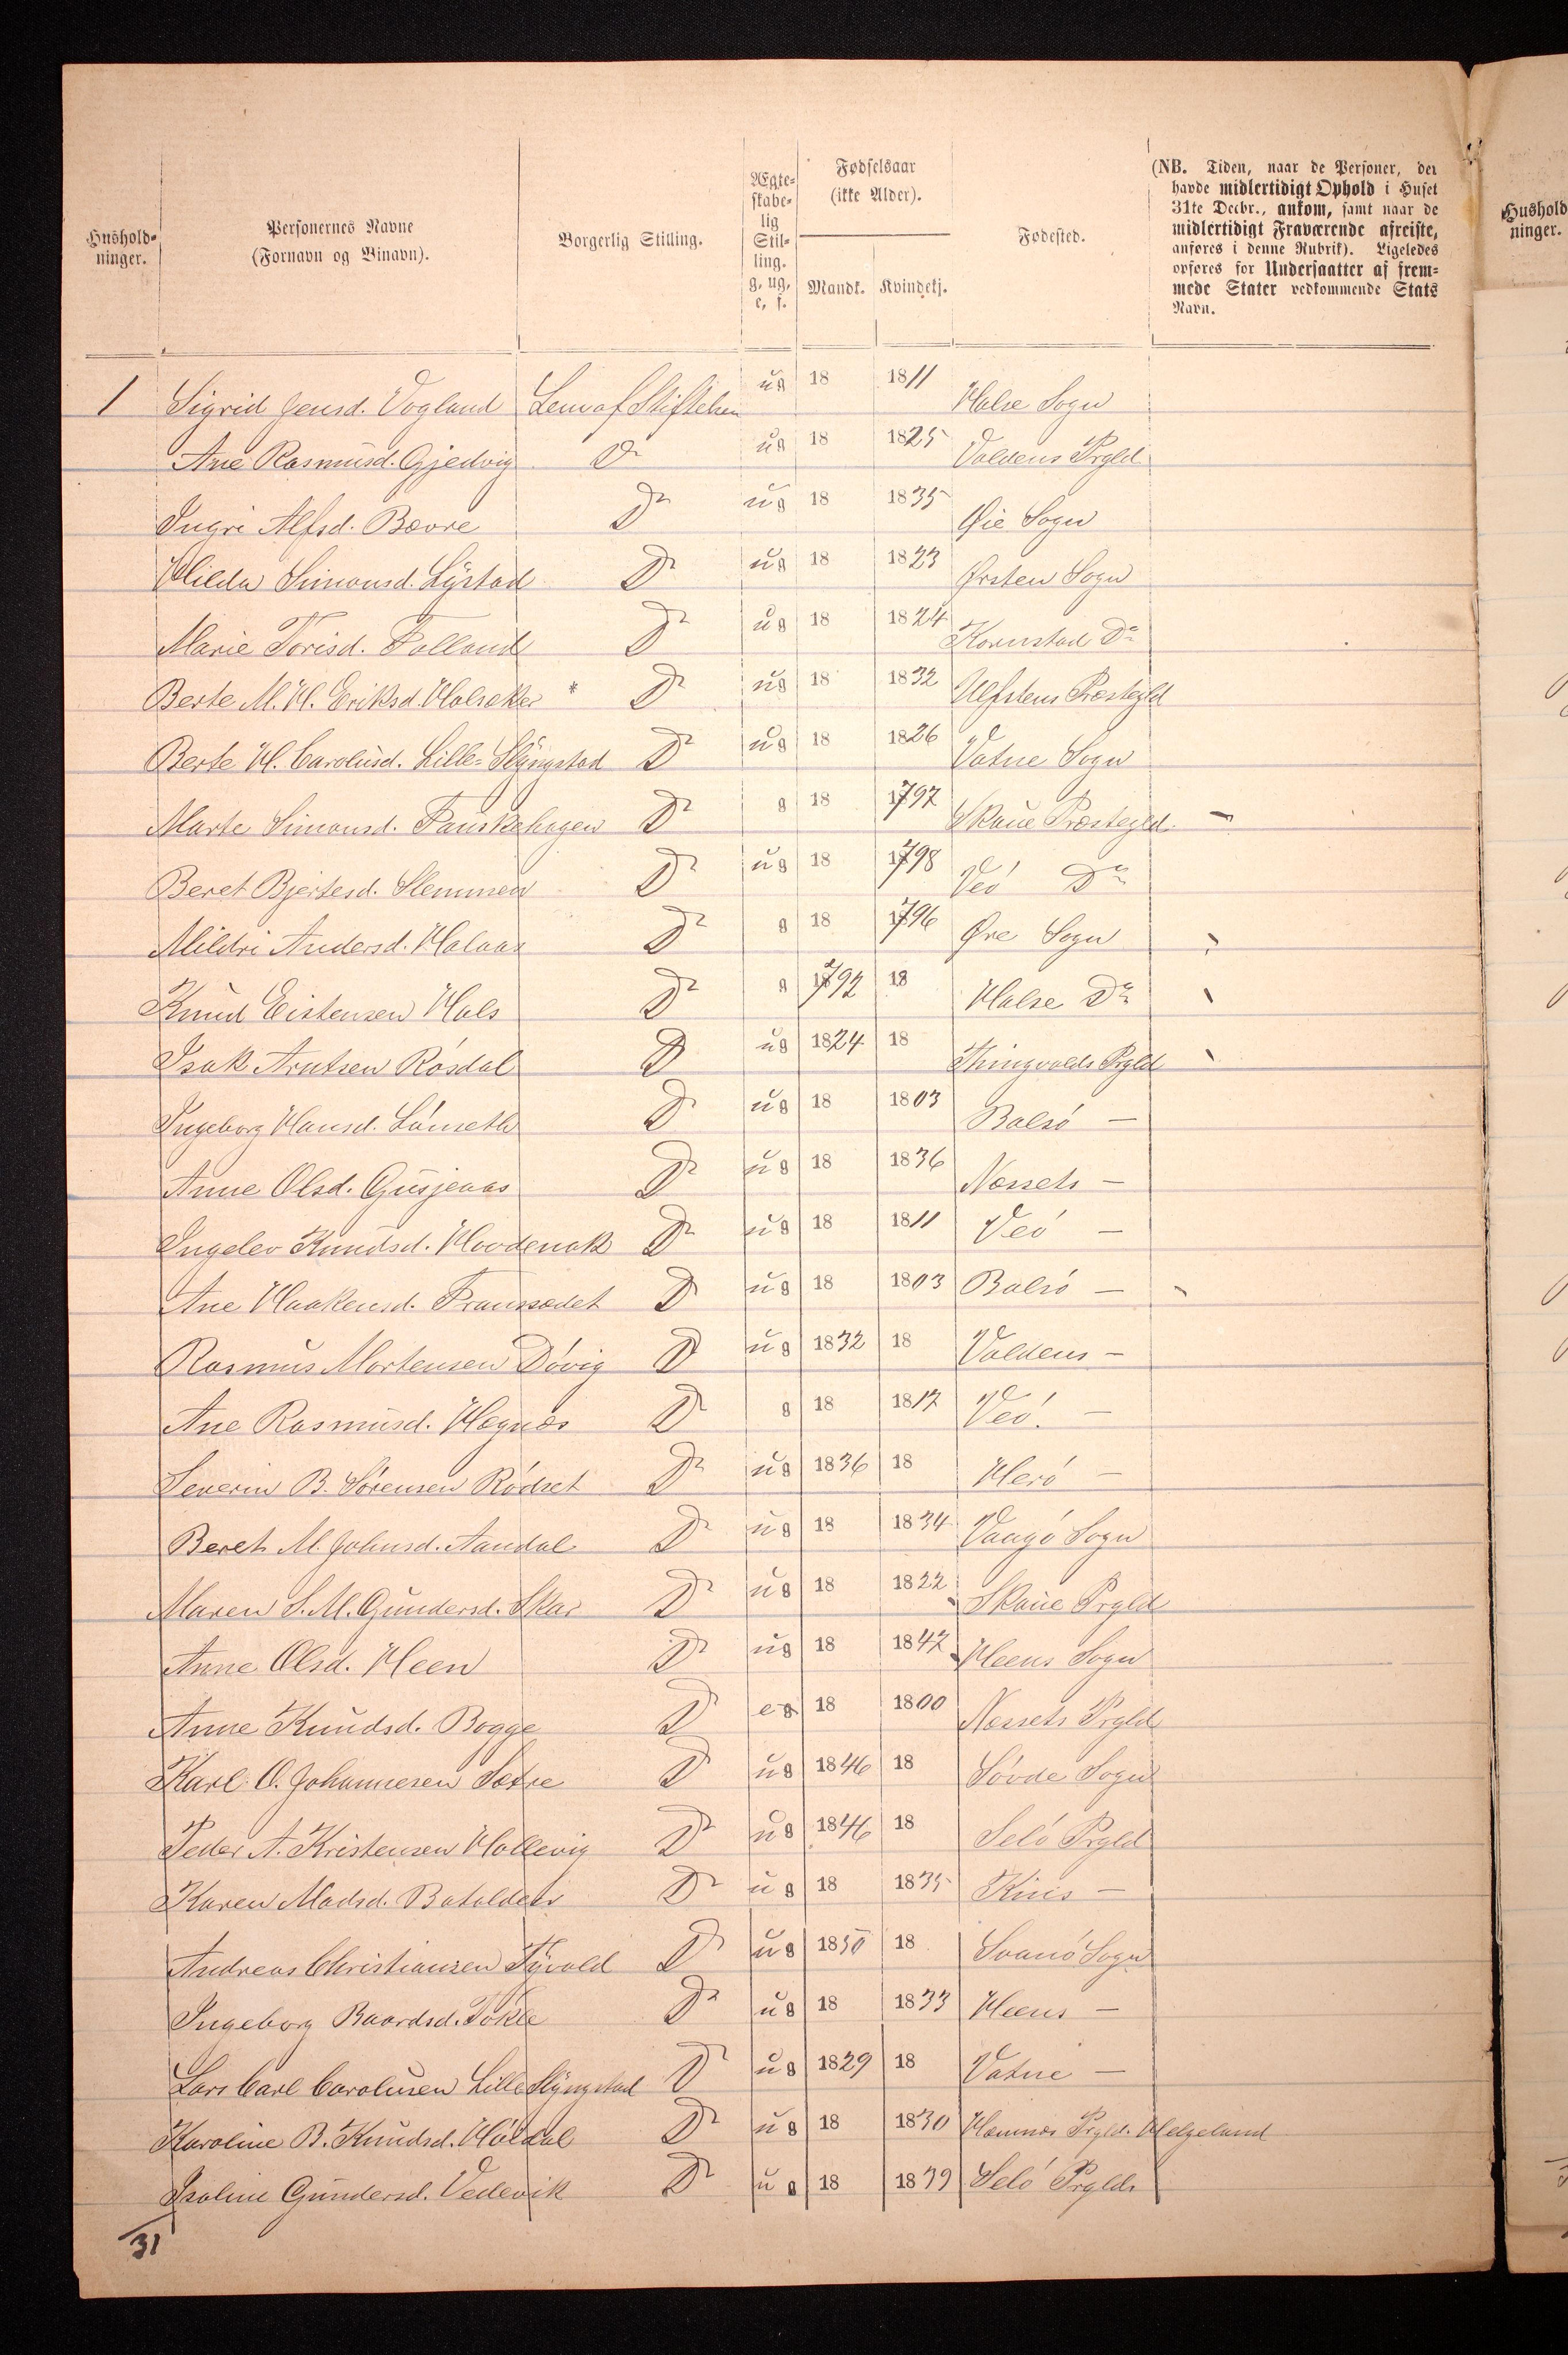 Hushold-
ninger.
Personernes Navne
(Fornavn og Binavn).
Borgerlig Stilling.
Ægte-
skabe-
lig
Stil-
ling.
g, ug,
e, f.
Fødselsaar
(ikke Alder).
Mandk. Kvindekj.
Fødested.
(NB. Tiden, naar de Personer, der
havde midlertidigt Ophold i Huset
31te Decbr., ankom, samt naar de
midlertidigt Fraværende afreiste,
anføres i denne Rubrik). Ligeledes
opføres for Undersaatter af frem-
mede Stater vedkommende Stats
Navn.
Hushold
ninger.
1 Sigrid Jensd. Vogland Lem af Stiftelsen ug 18 1811 Halse Sogn
Ane Rasmusd. Gjedvig Do ug 18 1825 Voldens Prgld
Ingri Alfsd. Bævre Do ug 18 1835 Øie Sogn
Hilda Simonsd. Systad Do ug 18 1823 Ørsten Sogn
Marie Torisd. Folland Do ug 18 1824 Kornstad Do
Berte M. H. Eriksd. Holsæker * Do ug 18 1832 Ulfstens Præstegld
Berte H. Carolusd. Lille-Slyngstad Do ug 18 1826 Vatne Sogn
Marte Simonsd. Fauskehagen Do g 18 1797 Skaue Præstegld
Beret Bjertesd. Slemmen Do ug 18 1798 Veö Do
Mildri Andersd. Holaas Do g 18 1796 Øre Sogn
Knud Eistensen Hals Do g 1792 18 Halse Do
Isak Arntsen Rösdal Do ug 1824 18 Thingvolds Prgld
Ingeborg Hansd. Lönseth Do ug 18 1803 Bolsö —
Anne Olsd. Gusjenas Do ug 18 1836 Næssets —
Ingelev Knudsd. Hovdenak Do ug 18 1811 Veö —
Ane Haakensd. Franssædet Do ug 18 1803 Bolsö —
Rasmus Mortensen Dövig Do ug 1832 18 Voldens —
Ane Rasmusd. Hægnæs Do g 18 1817 Veö —
Severin B. Sörensen Rödset Do ug 1836 18 Herö —
Beret M. Johnsd. Aandal Do ug 18 1834 Vaagö Sogn
Maren S. M. Gundersd. Skar Do ug 18 1822 Skaue Prgld
Anne Olsd. Heen Do ug 18 1847 Heens Sogn
Anne Knudsd. Bogge Do e 18 1800 Næssets Prgld
Karl O. Johannesen Sætre Do ug 1846 18 Sövde Sogn
Peder A. Kristensen Hallevig Do ug 1846 18 Selö Prgld
Karen Madsd. Batalden Do ug 18 1835 Kins —
Andreas Christiansen Tyvold Do ug 1850 18 Svanö Sogn
Ingeborg Baardsd. Tokle Do ug 18 1833 Heens —
Lars Carl Carolusen Lille Slyngstad Do ug 1829 18 Vatne —
Karoline B. Knudsd. Höldal Do ug 18 1830 Hæmnæs Prgld. Helgeland
Isoline Gundersd. Vedevik Do ug 18 1839 Selö Prglds
31